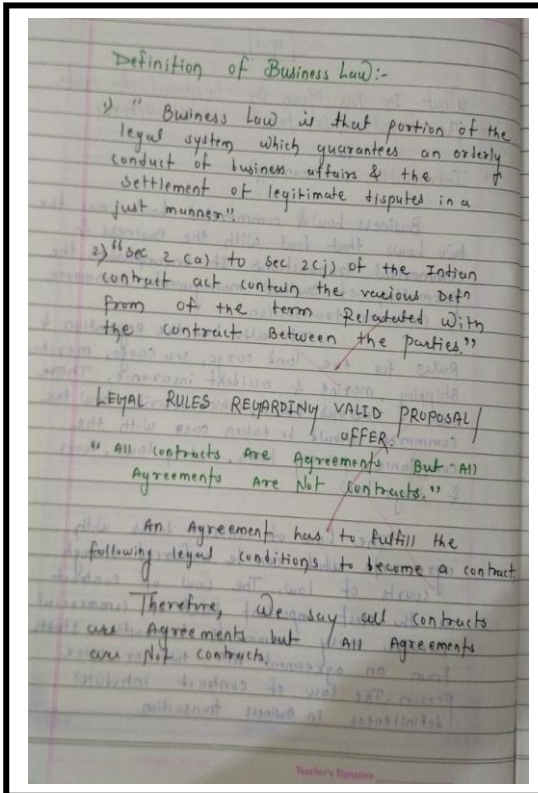 Definition of Business Law:-
1) " Business Law is that portion of the
legal system which guarantees an orderly
conduct of business affairs & the
settlement of legitimate disputes in a
just manner".
2) "Sec 2 (a) to sec 2(j) of the Indian
contract act contain the various Defn
from of the term Relatated with
the contract Between the parties."
LEGAL RULES REGARDING VALID PROPOSAL/
OFFER.
" All contracts Are Agreements But All
Agreements Are Not contracts."
An Agreement has to fulfill the
following legal conditions to become a contract.
Therefore, We say all contracts
are Agreements but All Agreements
are Not contracts.
Teacher's Signature